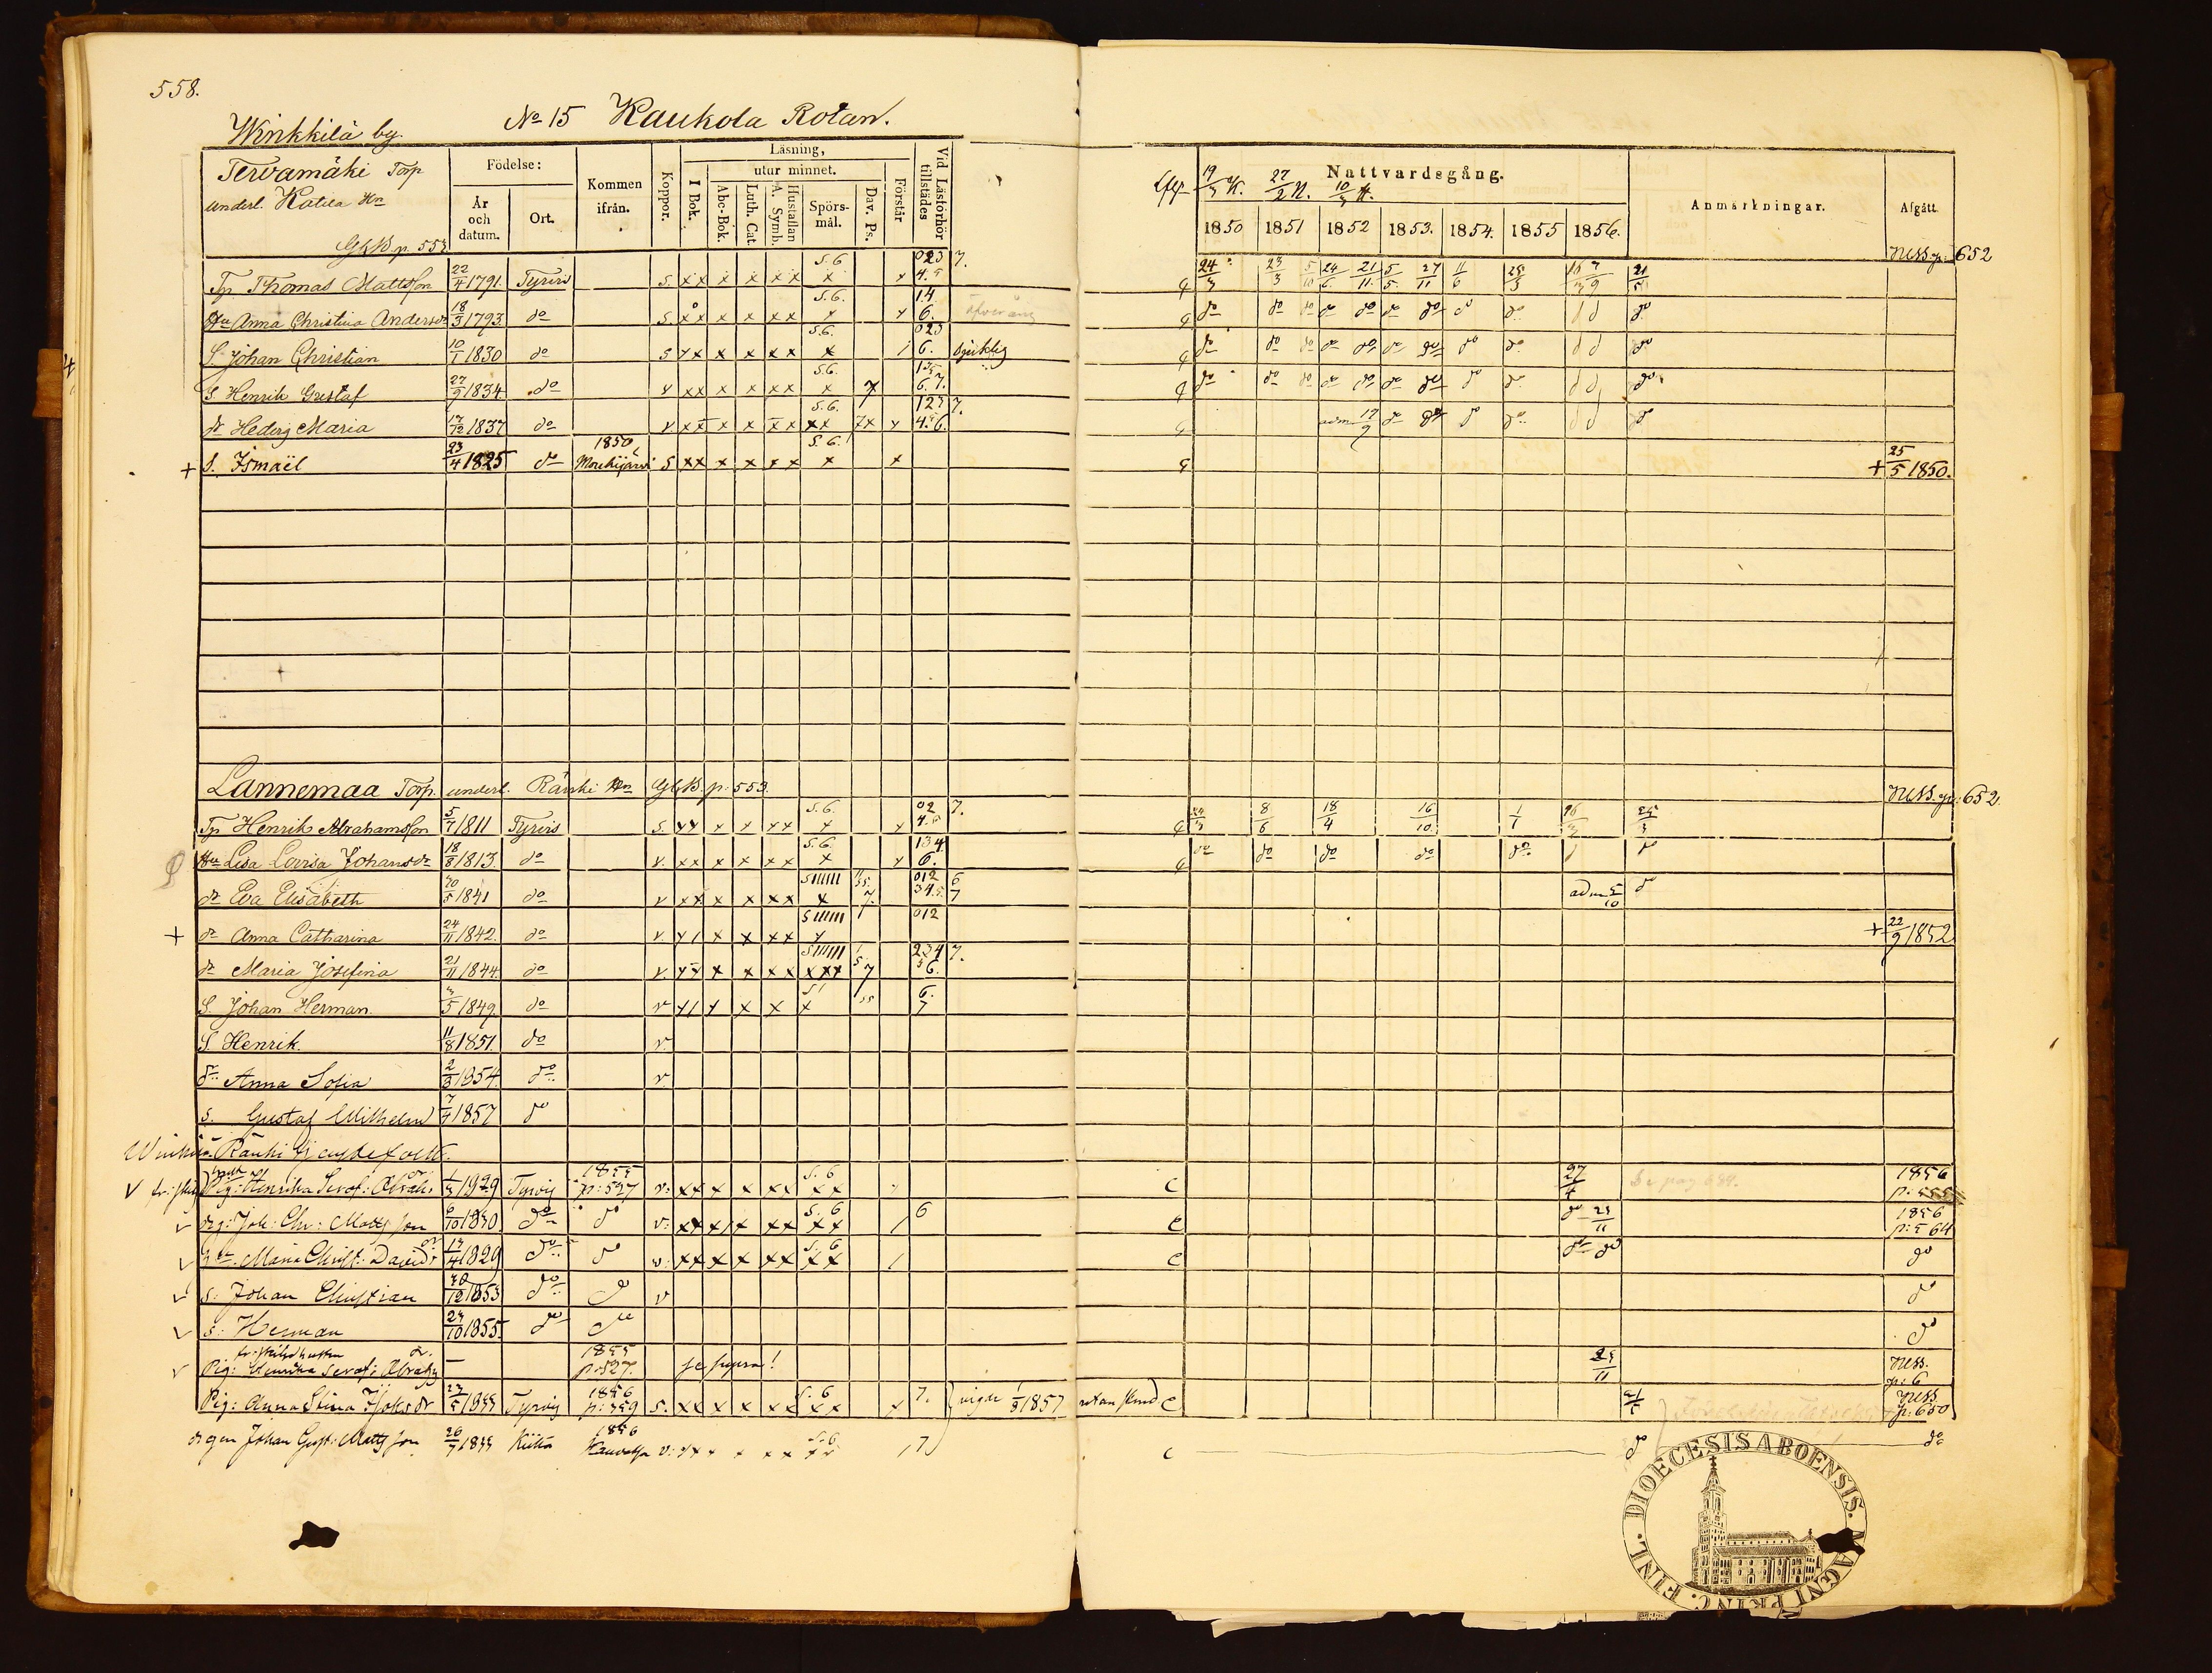 558.
No 15 Kaukola Rotan.
Winkkilä by.
Tervamäki Torp
underl. Kotila Hn
GKB p. 553
Födelse:
År och datum.
Ort.
Kommen ifrån.
Koppor.
Läsning,
I Bok.
utur minnet.
Abc-Bok.
Luth. Cat.
Hustaflan A. Symb.
Spörsmål.
Dav. Ps.
Förstår
Vid Läsförhör tillstädes
Nattvardsgång.
19/3 K. 27/2 N. 10/3
1850 1851 1852 1853. 1854. 1855 1856.
Anmärkningar.
Afgått.
NKB p: 652
Tp Thomas Mattsson 22/4 1791. Tyrvis S. x x x x x x S.6 x x 023 4.5 7. 24/3 23/3 5/10 24/6 21/11 5/5 27/11 11/6 25/3
Hu Anna Christina Andersdr 18/3 1793. do S. x x x x x x S.6. x x 14 6. do do do do do do do
S. Johan Christian 10/1 1830 do S x x x x x x S.6. x 023 6. Sjuklig do do do do do do do do do
S. Henrik Gustaf 27/9 1834. do v x x x x x x S.6. x 7 6.7. do do do do do do do do do
dr Hedvig Maria 17/12 1837 do v x x x x x x S.6. x x 7x 123 4.5.6. 7. adm 17/9 do do do do
+ S. Ismaël 23/4 1825 do 1850 Mouhijärvi S x x x x x x S.6. x x + 25/5 1850.
Lannemaa Torp. underl. Ränki Hn GKB. p: 553.
NKB. p: 652.
Tp Henrik Abrahamsson 5/7 1811 Tyrvis S. x x x x x x S.6. x x 02 4.5 7. 8/6 18/4 16/10. 1/1 16/3 25/3
Hu Lisa Lovisa Johansdr 18/8 1813. do v. x x x x x x S.6. x x 134 6. do do do do do do
dr Eva Elisabeth 30/5 1841 do v x x x x x x x 7. 012 34.5 6 7 adm 5/10 do
+ dr Anna Catharina 24/11 1842. do v. x x x x x 012 + 22/9 1852
dr Maria Josefina 21/11 1844. do v. x x x x x x x x x 7 234 56. 7.
S. Johan Herman. 3/5 1849. do v x x x x x 6. 7
S Henrik. 11/8 1851. do v.
dr Anna Sofia 2/3 1854. do v.
s. Gustaf Wilhelm 7/4 1857 do
Winkkilä Ränki tjenstefolk.
Pig: Henrika Seraf: Abrah: dr 1/3 1829 Tyrvis 1855 p: 527 v: x x x x x x S.6 x x 27/4 1856
drg: Joh: Chr: Mattsson 6/10 1830 do do v: x x x x x x S.6 x x 6 do 25/11 1856 p: 564
Hu Maria Christ: Davids dr 13/4 1829 do do v: x x x x x x S.6 x x do do do
s: Johan Christian 30/12 1853 do do v do
s: Herman 23/10 1855. do do do
Pig: Henrika Seraf: Abrahs dr. — 1855 p: 527. se supra! 25/11 NKB. p: 6
Pig: Anna Stina Isaks dr 23/5 1833 Tyrvis 1856 p: 359 S. x x x x x x S.6 x x x 7. vigde 1/3 1857 NKB p: 650
drgen Johan Gust: Mattsson 26/7 1833 Kiikka 1856 v: x x x x x x S.6 x x 7 do do
DIOECESIS ABOENSIS. MAGNI PRINC. FINL.